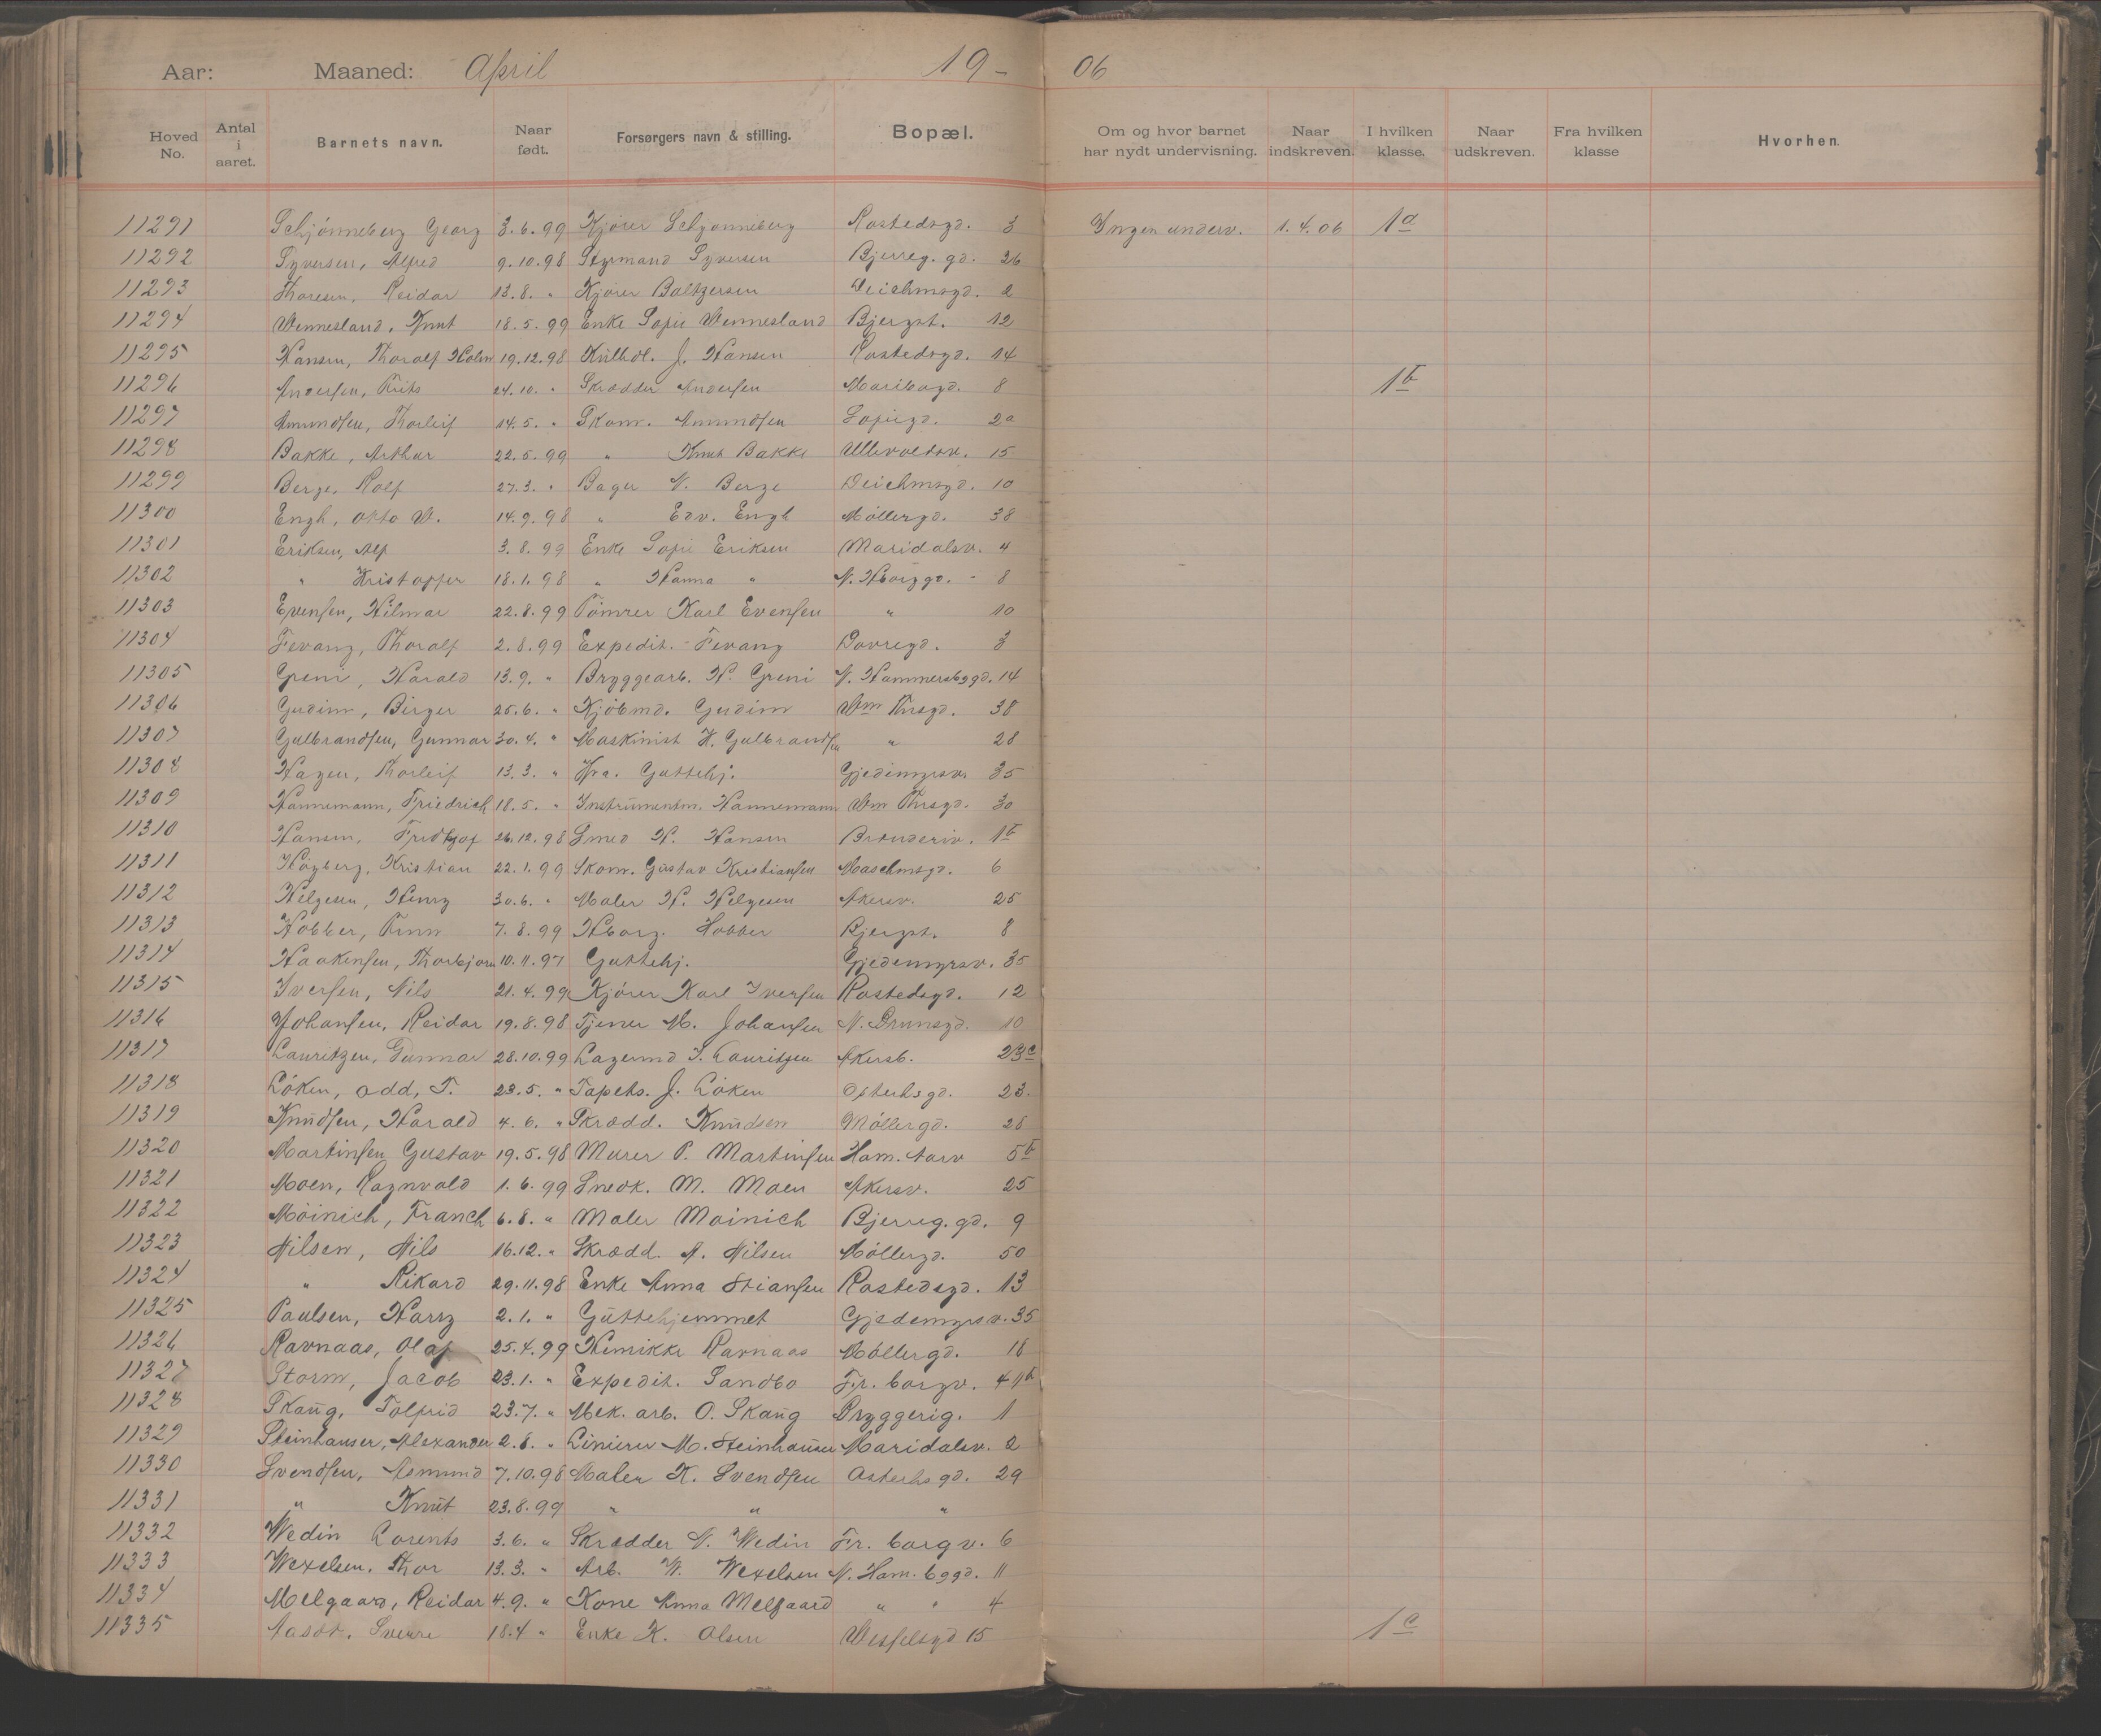 Aar: Maaned: April 19- 06
Hoved No. Antal i aaret. Barnets navn. Naar født. Forsørgers navn & stilling. Bopæl. Om og hvor barnet har nydt undervisning. Naar indskreven. I hvilken klasse. Naar udskreven. Fra hvilken klasse Hvorhen.
11291 Schjönneberg Georg 3.6.99 Kjörer Schjonneberg Rostedsgd. 3 Ingen underv. 1.4.06 1a
11292 Syversen, Alfred 9.10.98 Styrmand Syversen Bjerreg. gd. 26
11293 Thoresen, Reidar 13.8. " Kjörer Baltzersen Deichmsgd. 2
11294 Wennesland, Knut 18.5.99 Enke Sofie Wennesland Bjergst. 12
11295 Hansen, Thoralf Holm 19.12.98 J. Hansen Rostedsgd. 14
11296 Andersen, Frits 24.10. " Skrædder Andersen Maribogd. 8 1b
11297 Amundsen, Thorleif 14.5. " Skom. Amundsen Sofiegd. 2a
11298 Bakke, Arthur 22.5.99 " Knut Bakke Ullevoldsv. 15
11299 Berge, Rolf 27.3. " Bager N. Berge Deichmsgd. 10
11300 Engh, Otto W. 14.9.98 " Edv. Engh Möllergd. 38
11301 Eriksen, Alf 3.8.99 Enke Sofie Eriksen Maridalsv. 4
11302 " Kristoffer 18.1.98 " Hanna " 8
11303 Evensen, Hilmar 22.8.99 Tömrer Karl Evensen " 10
11304 Fevang, Thoralf 2.8.99 Expedit. Fevang Dovregd. 3
11305 Greni, Harald 13.9. " Bryggearb. H. Greni N. Hammersbggd. 14
11306 Gudim, Birger 25.6. " Kjöbmd. Gudim Wm Thrsgd. 38
11307 Gulbrandsen, Gunnar 30.4. " Maskinist H. Gulbrandsen " 28
11308 Hagen, Thorleif 13.3. " Fra. Guttehj. Gjedemyrsv. 35
11309 Hannemann, Friedrich 18.5. " Instrumentm. Hannemann Wm Thrsgd. 30
11310 Hansen, Fridtjof 26.12.98 Smed H. Hansen Brænderiv. 1b
11311 Högberg, Kristian 22.1.99 Skom. Gustav Kristiansen Maschmsgd. 6
11312 Helgesen, Henry 30.6. " Maler H. Helgesen Akersv. 25
11313 Hobber, Finn 7.8.99 Hobber Bjergst. 8
11314 Haakensen, Thorbjorn 10.11.97 Guttehj. Gjedemyrsv. 35
11315 Iversen, Nils 21.4.99 Kjörer Karl Iversen Rostedsgd. 12
11316 Johansen, Reidar 19.8.98 Tjener M. Johansen N. Brunsgd. 10
11317 Lauritzen, Gunnar 28.10.99 Lagermd J. Lauritzen Akersb. 23c
11318 Löken, Odd, T. 23.5. " Tapets. J. Löken Osterhsgd. 23.
11319 Knudsen, Harald 4.6. " Skrædd. Knudsen Möllergd. 26
11320 Martinsen Gustav 19.5.98 Murer P. Martinsen Ham. torv 5b
11321 Moen, Ragnvald 1.6.99 Snedk. M. Moen Akersv. 25
11322 Möinich, Franch 6.8. " Maler Moinich Bjerreg. gd. 9
11323 Nilsen, Nils 16.12. " Skrædd. A. Nilsen Möllergd. 50
11324 " Rikard 29.11.98 Enke Anna Stiansen Rostedsgd. 13
11325 Paulsen, Harry 2.1. " Guttehjemmet Gjedemyrsv. 35
11326 Ravnaas, Olaf 25.4.99 Henrikke Ravnaas Möllergd. 18
11327 Storm, Jacob 23.1. " Expedit. Sandbo Fr. borgv. 41b
11328 Skaug, Tolfrid 23.7. " Mek. arb. O. Skaug Bryggerig. 1
11329 Steinhauser, Alexander 2.8. " Linierer M. Steinhauser Maridalsv. 2
11330 Svendsen, Asmund 7.10.98 Maler K. Svendsen Osterhsgd. 29
11331 " Knut 23.8.99 " " "
11332 Wedin Lorents 3.6. " Skrædder N. Wedin Fr. borgv. 6
11333 Wexelsen, Thor 13.3. " Arb. W. Wexelsen N. Ham. bggd. 11
11334 Melgaard, Reidar 4.9. " Kone Anna Melgaard " " 4
11335 Sverre 18.4 " Enke K. Olsen Wesselsgd 15 1c